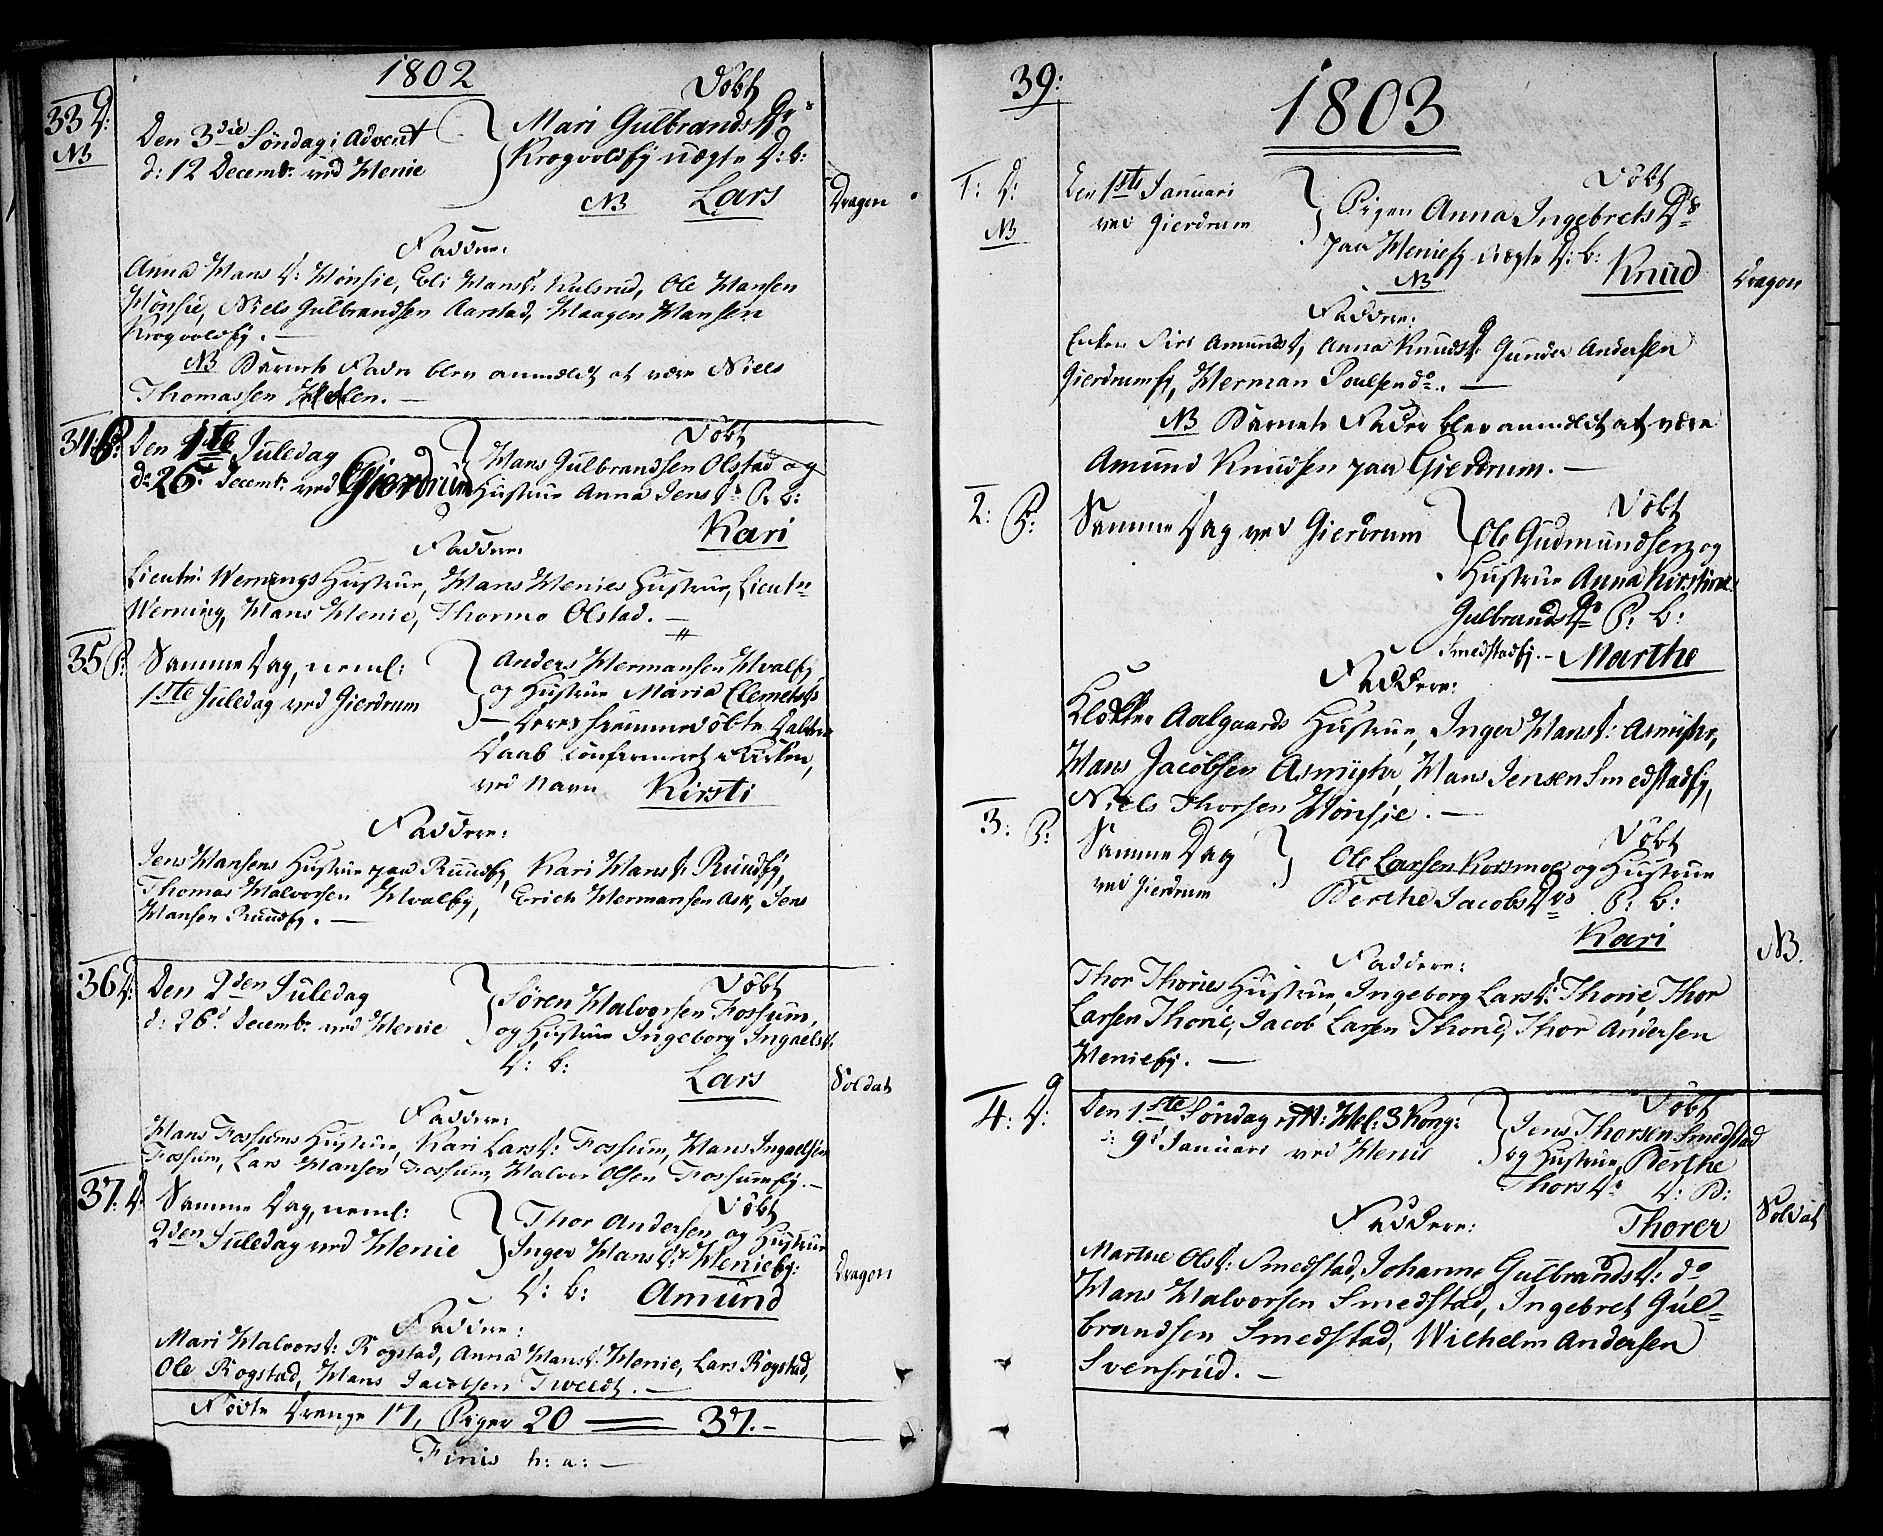 1802
33 D:
NB
Døbt
Den 3die Søndag i Advent
d: 12 Decemb: ved Henie
Mari Gulbrands Dr
Krogvoldfy uægte D: b:
NB Lars
Dragon
Faddere:
Anna Hans D: Hønsie, Eli Hansd: Kulsrud, Ole Hansen
Hønsie, Niels Gulbrandsen Aarstad, Haagen Hansen
Krogvoldfy. —
NB Barnets Fader blev anmeldt at være Niels
Thomassen
34 P:
Døbt
Den 1ste Juledag
d: 25 Decemb: ved Gierdrum
Hans Gulbrandsen Olstad og
Hustrue Anna Jens D: P: b:
Kari
Faddere
Lieutn: Wernings Hustrue, Hans Henies Hustrue, Lieutn
Werning, Hans Henie, Thormo Olstad. —
35 P:
Samme Dag, neml:
1ste Juledag ved Gierdrum
Anders Hermansen Hvalfy
og Hustrue Maria Clemetsd
— Deres hiemmedøbte
Daab confirmeret i Kirken,
ved Navn Kirsti
Faddere:
Jens Hansens Hustrue paa Ruudfy, Kari Hansd: Ruudfy,
Thomas Halvorsen Hvalfy, Erich Hermansen Ask, Jens
Hansen Ruudfy. —
36 D:
Døbt
Den 2den Juledag
d: 26 Decemb: ved Henie
Søren Halvorsen Fossum,
og Hustrue Ingeborg Ingaelsd
D: b:
Lars
Soldat
Faddere:
Hans Fossums Hustrue, Kari Larsd: Fossum, Hans Ingaelsen
Fossum, Lars Hansen Fossum, Halvor Olsen Fossumfy. —
37: D:
Døbt
Samme Dag, neml:
2den Juledag ved Henie
Thor Andersen og Hustrue
Inger Hansdr Heniefy:
D: b: Amund
Dragon
Faddere:
Mari Halvorsd: Rogstad, Anna Hansd: Henie, Lars Rogstad,
Ole Rogstad, Hans Jacobsen Tweedt. —
Fødte Drenge 17, Piger 20 — 37. —
Finis h: a: —
39:
1803
1: D:
NB
Døbt
Den 1ste Januari
ved Gierdrum
Pigen Anna Ingebrets Dr
paa Heniefy uægte D: b:
NB Knud
Dragon
Faddere:
Enken Siri Amundsd, Anna Knudsd: Gunder Andersen
Gierdrumfy, Herman Poulsen do. —
NB Barnets Fader blev anmeldt at være
Amund Knudsen paa Gierdrum. —
2: P:
Døbt
Samme Dag ved Gierdrum
Ole Gudmundsen og
Hustrue Anna Kirstine
Gulbrands D P: b:
Smedstadfy. — Marthe
Faddere:
Klokker Aalgaards Hustrue, Inger Hansd: Asmyhr,
Hans Jacobsen Asmyhr, Hans Jensen Smedstadfy,
Niels Thorsen Hønsie. —
3: P:
Døbt
Samme Dag
ved Gierdrum
Ole Larsen Korsmoe og Hustrue
Berthe Jacobs Dr P: b:
Kari
NB.
Faddere:
Thor Thories Hustrue, Ingeborg Larsd: Thorie, Thor
Larsen Thorie, Jacob Larsen Thorie, Thor Andersen
Heniefy. —
4: D:
Døbt
Den 1ste Søndag Hel: 3 Kong:
9 Januari ved Henie
Jens Thorsen Smedstad
og Hustrue Berthe
Thors D: D: B:
Thorer
Soldat
Faddere:
Marthe Olsd: Smedstad, Johanne Gulbrandsd: do
Hans Halvorsen Smedstad, Ingebret Gul=
brandsen Smedstad, Wilhelm Andersen
Svensrud. —